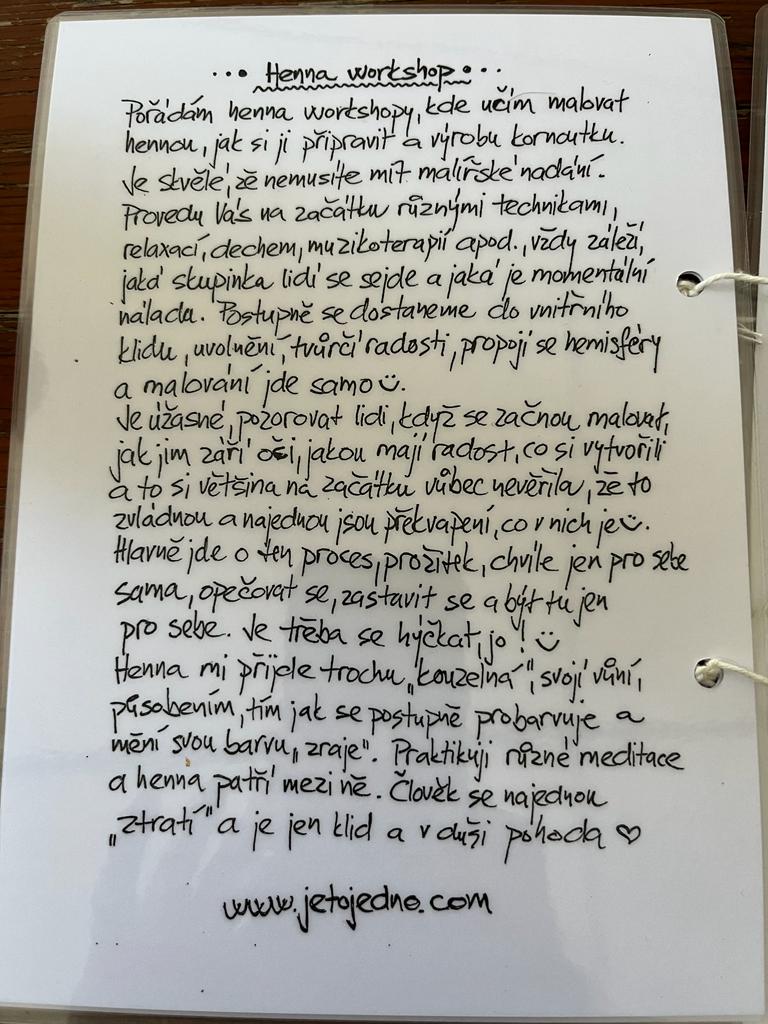 ... Henna workshop...
Pořádám henna workshopy, kde učím malovat
hennou, jak si ji připravit a výrobu kornoutku.
Je skvělé, že nemusíte mít malířské nadání.
Provedu Vás na začátku různými technikami,
relaxací, dechem, muzikoterapií apod., vždy záleží,
jaká skupinka lidí se sejde a jaká je momentální
nálada. Postupně se dostaneme do vnitřního
klidu, uvolnění, tvůrčí radosti, propojí se hemisféry
a malování jde samo ☺.
Je úžasné, pozorovat lidi, když se začnou malovat,
jak jim září oči, jakou mají radost, co si vytvořili
a to si většina na začátku vůbec nevěřila, že to
zvládnou a najednou jsou překvapení, co v nich je ☺.
Hlavně jde o ten proces, prožitek, chvíle jen pro sebe
sama, opečovat se, zastavit se a být tu jen
pro sebe. Je třeba se hýčkat, jo! ☺
Henna mi přijde trochu „kouzelná", svojí vůní,
působením, tím jak se postupně probarvuje a
mění svou barvu „zraje". Praktikuji různé meditace
a henna patří mezi ně. Člověk se najednou
„ztratí" a je jen klid a v duši pohoda ♡
www.jetojedno.com